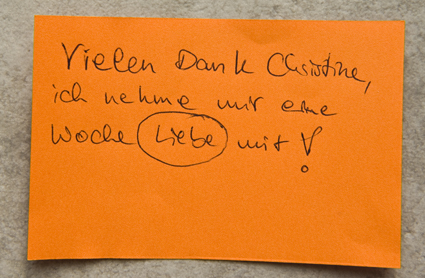 Vielen Dank Christine,
ich nehme mir eine
Woche Liebe mit!